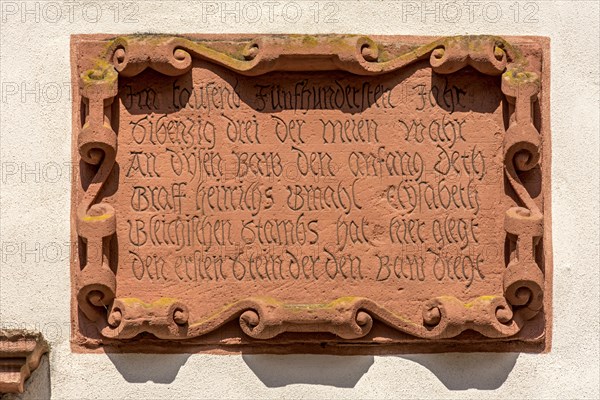 Im tausend Fünfhundersten Jahr
Sibenzig drei der meien wahr
An disen Baw den anfang Deth
Graff Heinrichs Gmahl elisabeth
Gleichischen Stambs hat hier glegt
den ersten Stein der den Baw Dregt